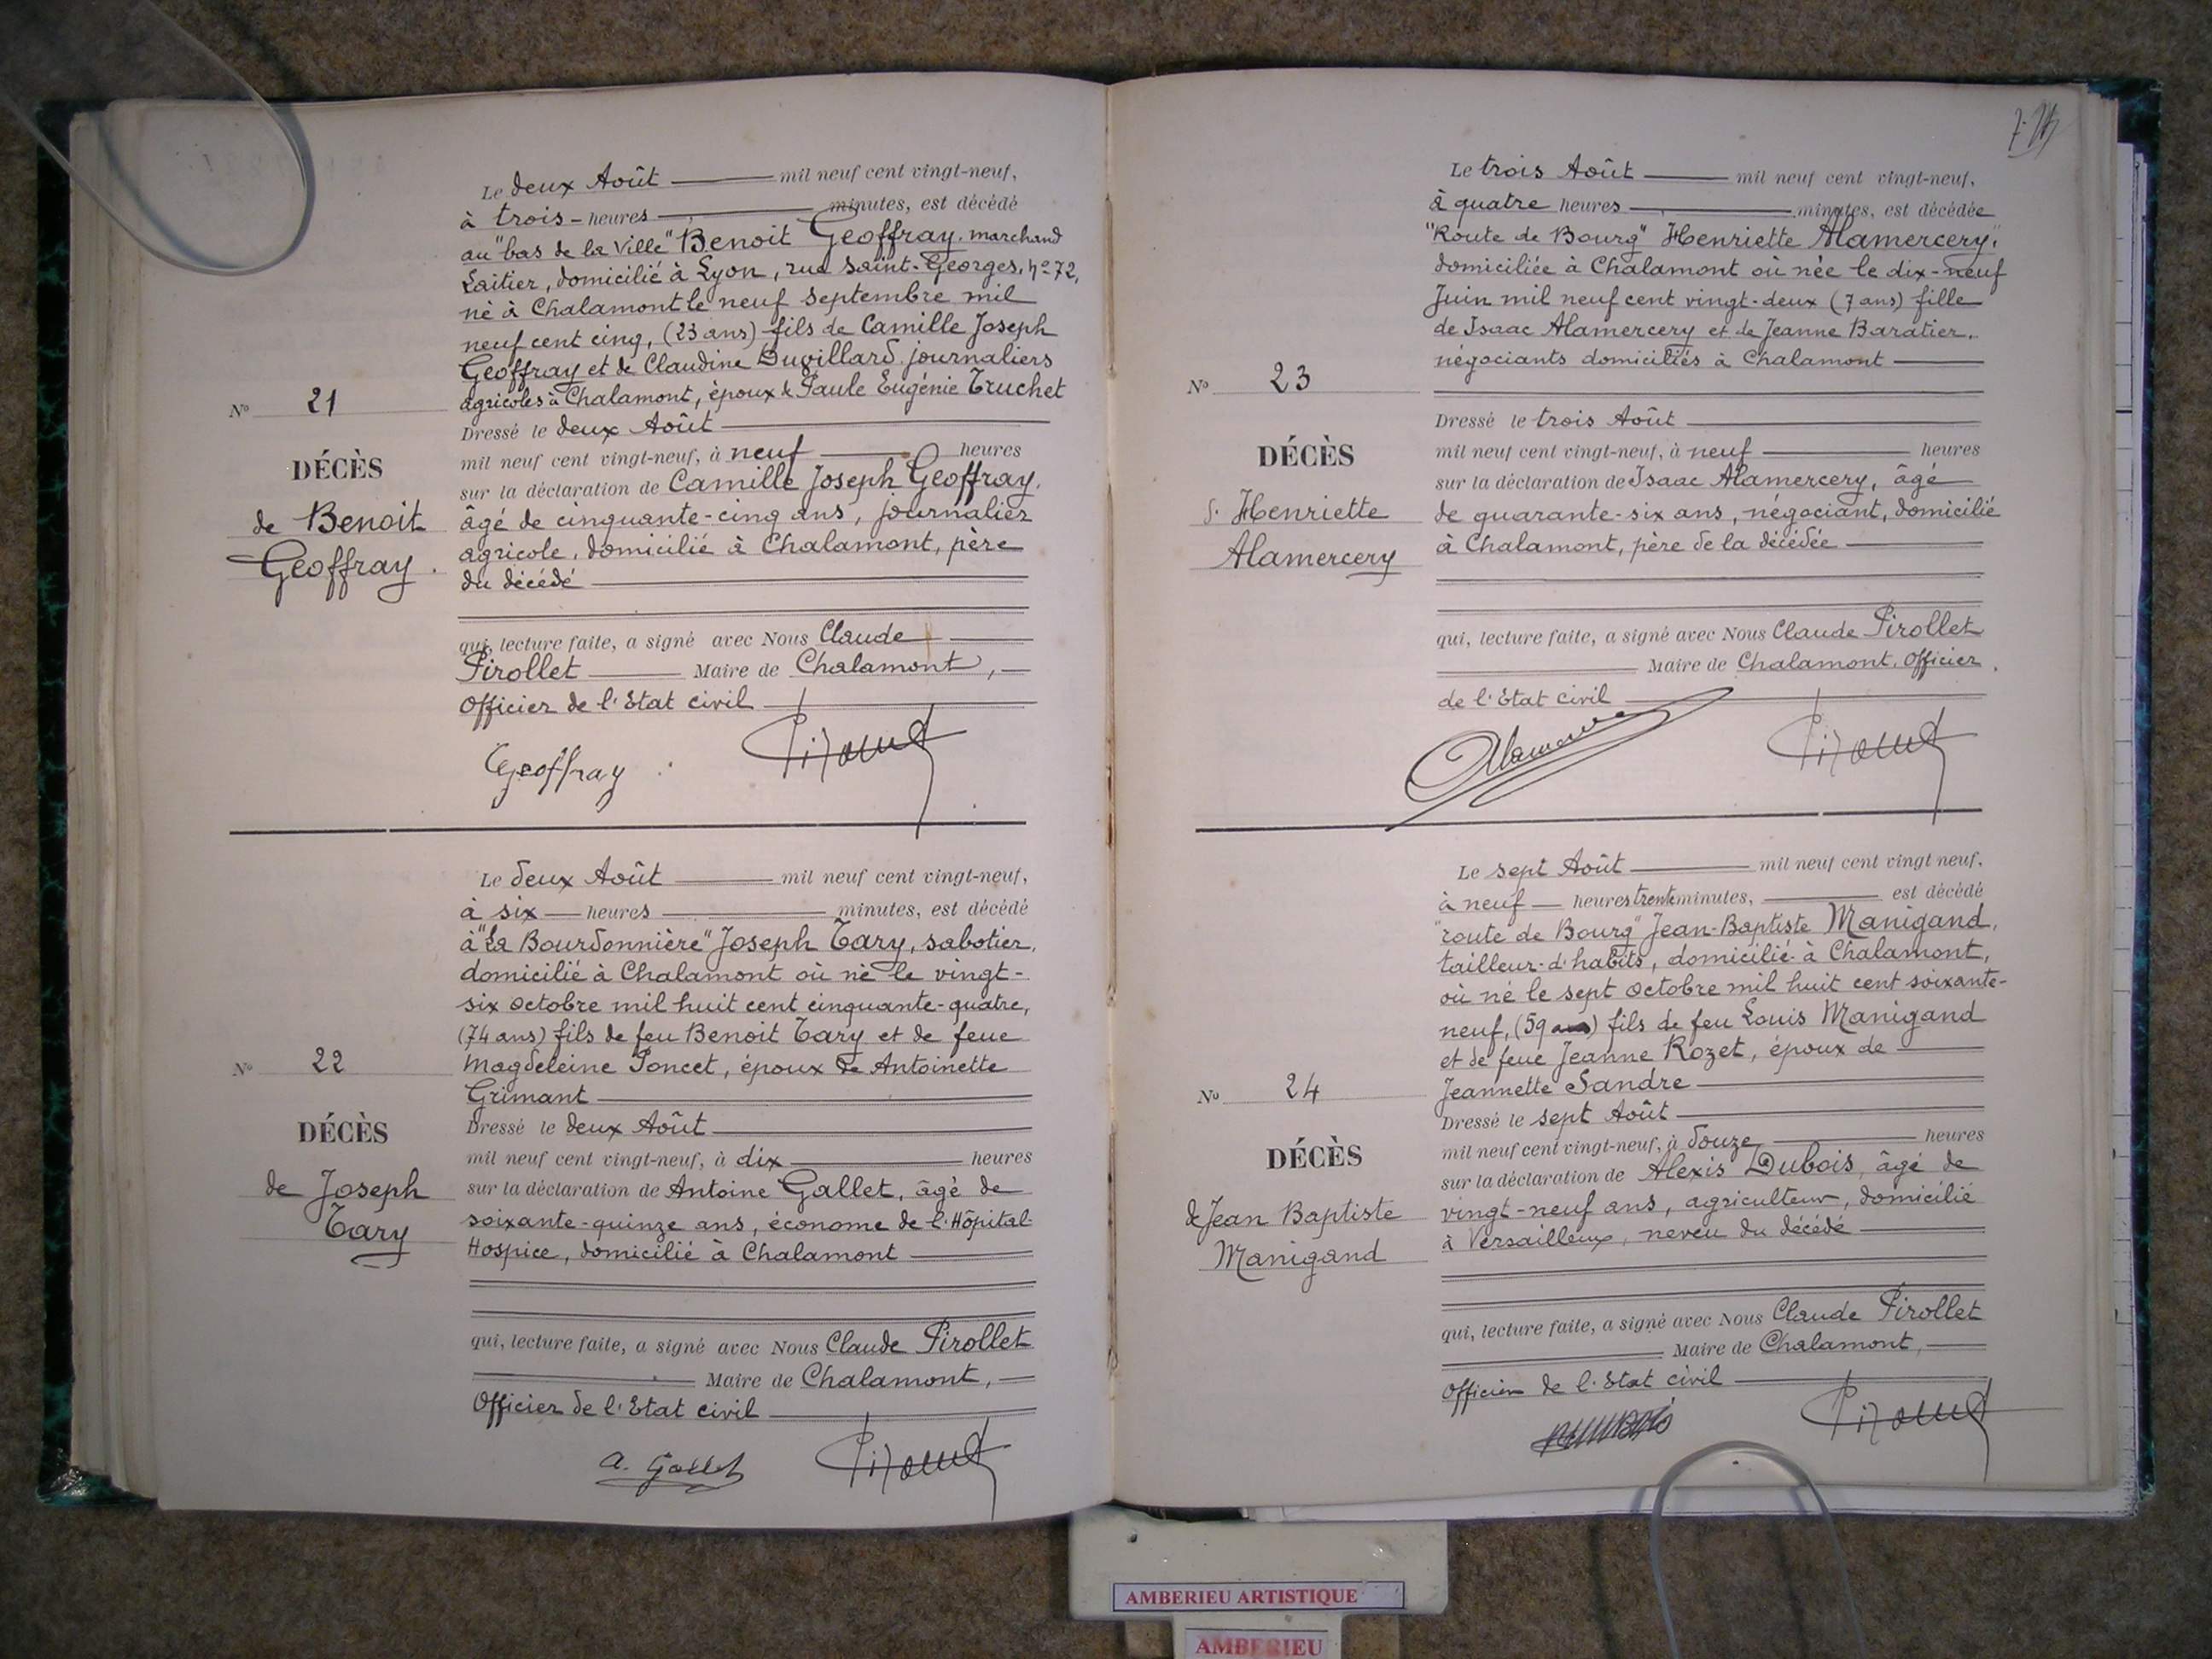 Le deux Août mil neuf cent vingt-neuf,
à trois - heures minutes, est décédé
au "bas de la Ville" Benoit Geoffray, marchand
Laitier, domicilié à Lyon, rue Saint-Georges, nº 72,
né à Chalamont le neuf septembre mil
neuf cent cinq, (23 ans) fils de Camille Joseph
Geoffray et de Claudine Duvillard journaliers
agricoles à Chalamont, époux de Paule Eugénie Truchet
Dressé le deux Août
mil neuf cent vingt-neuf, à neuf heures
sur la déclaration de Camille Joseph Geoffray,
âgé de cinquante-cinq ans, journalier
agricole, domicilié à Chalamont, père
du décédé
qui, lecture faite, a signé avec Nous Claude
Pirollet Maire de Chalamont,
Officier de l'Etat civil
Geoffray Pirollet
Nº 21
DÉCÈS
de Benoit
Geoffray.
Le deux Août mil neuf cent vingt-neuf,
à six heures minutes, est décédé
à "La Bourdonnière" Joseph Tary, sabotier,
domicilié à Chalamont où né le vingt-
six octobre mil huit cent cinquante-quatre,
(74 ans) fils de feu Benoit Tary et de feue
Magdeleine Poncet, époux de Antoinette
Grimant
Dressé le deux Août
mil neuf cent vingt-neuf, à dix heures
sur la déclaration de Antoine Gallet, âgé de
soixante-quinze ans, économe de l'Hôpital-
Hospice, domicilié à Chalamont
qui, lecture faite, a signé avec Nous Claude Pirollet
Maire de Chalamont,
Officier de l'Etat civil
A. Gallet Pirollet
Nº 22
DÉCÈS
de Joseph
Tary
Le trois Août mil neuf cent vingt-neuf,
à quatre heures minutes, est décédée
"Route de Bourg" Henriette Alamercery,
domiciliée à Chalamont où née le dix-neuf
Juin mil neuf cent vingt-deux (7 ans) fille
de Isaac Alamercery et de Jeanne Baratier,
négociants domiciliés à Chalamont
Dressé le trois Août
mil neuf cent vingt-neuf, à neuf heures
sur la déclaration de Isaac Alamercery, âgé
de quarante-six ans, négociant, domicilié
à Chalamont, père de la décédée
qui, lecture faite, a signé avec Nous Claude Pirollet
Maire de Chalamont, Officier
de l'Etat civil
Alamercery Pirollet
Nº 23
DÉCÈS
d'Henriette
Alamercery
Le sept Août mil neuf cent vingt neuf,
à neuf heures trente minutes, est décédé
"route de Bourg" Jean-Baptiste Manigand,
tailleur-d'habits, domicilié à Chalamont,
où né le sept octobre mil huit cent soixante-
neuf, (59 ans) fils de feu Louis Manigand
et de feue Jeanne Rozet, époux de
Jeannette Sandre
Dressé le sept Août
mil neuf cent vingt-neuf, à douze heures
sur la déclaration de Alexis Dubois, âgé de
vingt-neuf ans, agriculteur, domicilié
à Versailleux, neveu du décédé
qui, lecture faite, a signé avec Nous Claude Pirollet
Maire de Chalamont,
Officier de l'Etat civil
Pirollet
Nº 24
DÉCÈS
de Jean Baptiste
Manigand
AMBERIEU ARTISTIQUE
AMBERIEU